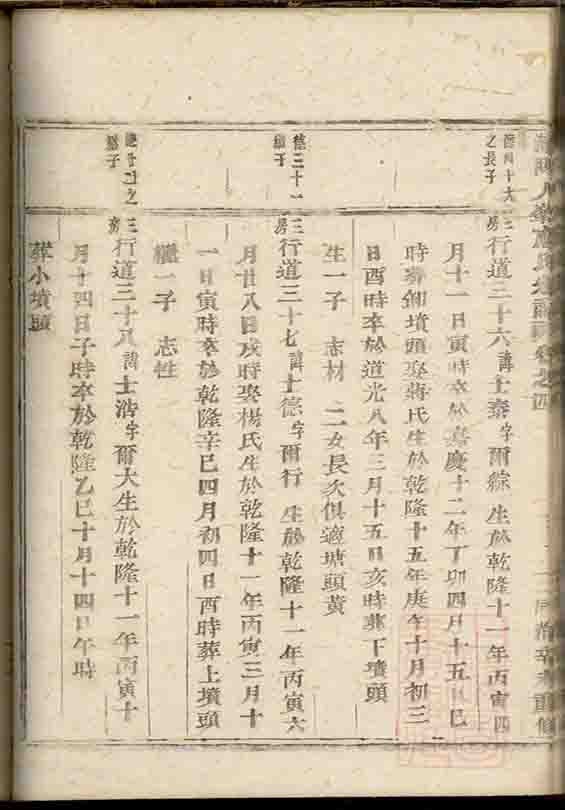 德四十六
之長子
三房行道三十六諱士泰字爾綜生於乾隆十一年丙寅四
月十一日寅時卒於嘉慶十二年丁卯四月十五日巳
時葬卸墳頭娶蔣氏生於乾隆十五年庚午十月初三
日酉時卒於道光八年三月十五日亥時葬下墳頭
生一子 志材 二女長次俱適塘頭黃
德三十一
繼子
三房行道三十七諱士德字爾行 生於乾隆十一年丙寅六
月廿八日戌時娶楊氏生於乾隆十一年丙寅三月十
一日寅時卒於乾隆辛巳四月初四日酉時葬上墳頭
繼一子 志性
之
子
三房行道三十八諱士浩字爾大生於乾隆十一年丙寅十
月十四日子時卒於乾隆乙巳十月十四日午時
葬小墳頭